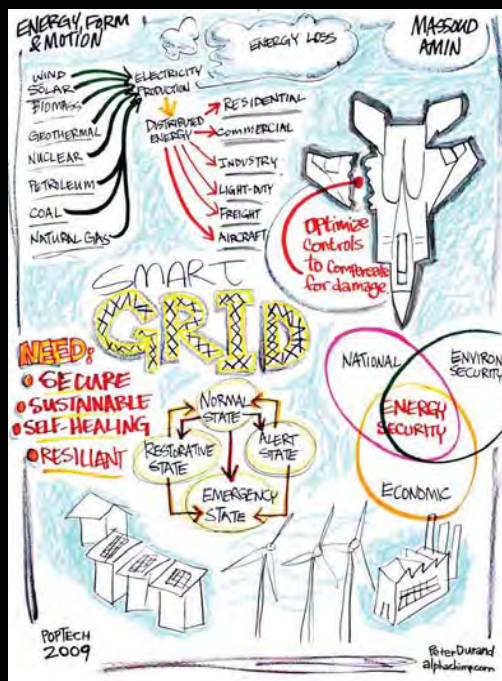 ENERGY, FORM
& MOTION
ENERGY LOSS
MASSOUD
AMIN
WIND
SOLAR
BIOMASS
GEOTHERMAL
NUCLEAR
PETROLEUM
COAL
NATURAL GAS
ELECTRICITY
PRODUCTION
DISTRIBUTED
ENERGY
RESIDENTIAL
COMMERCIAL
INDUSTRY
LIGHT-DUTY
FREIGHT
AIRCRAFT
OPtimize
controls
to compensate
for damage.
SMART
GRID
NEED:
SECURE
SUSTAINABLE
SELF-HEALING
RESILIANT
NORMAL
STATE
RESTORATIVE
STATE
ALERT
STATE
EMERGENCY
STATE
NATIONAL
ENVIRON
SECURITY
ENERGY
SECURITY
ECONOMIC
POPTECH
2009
PeterDurand
alphachimp.com